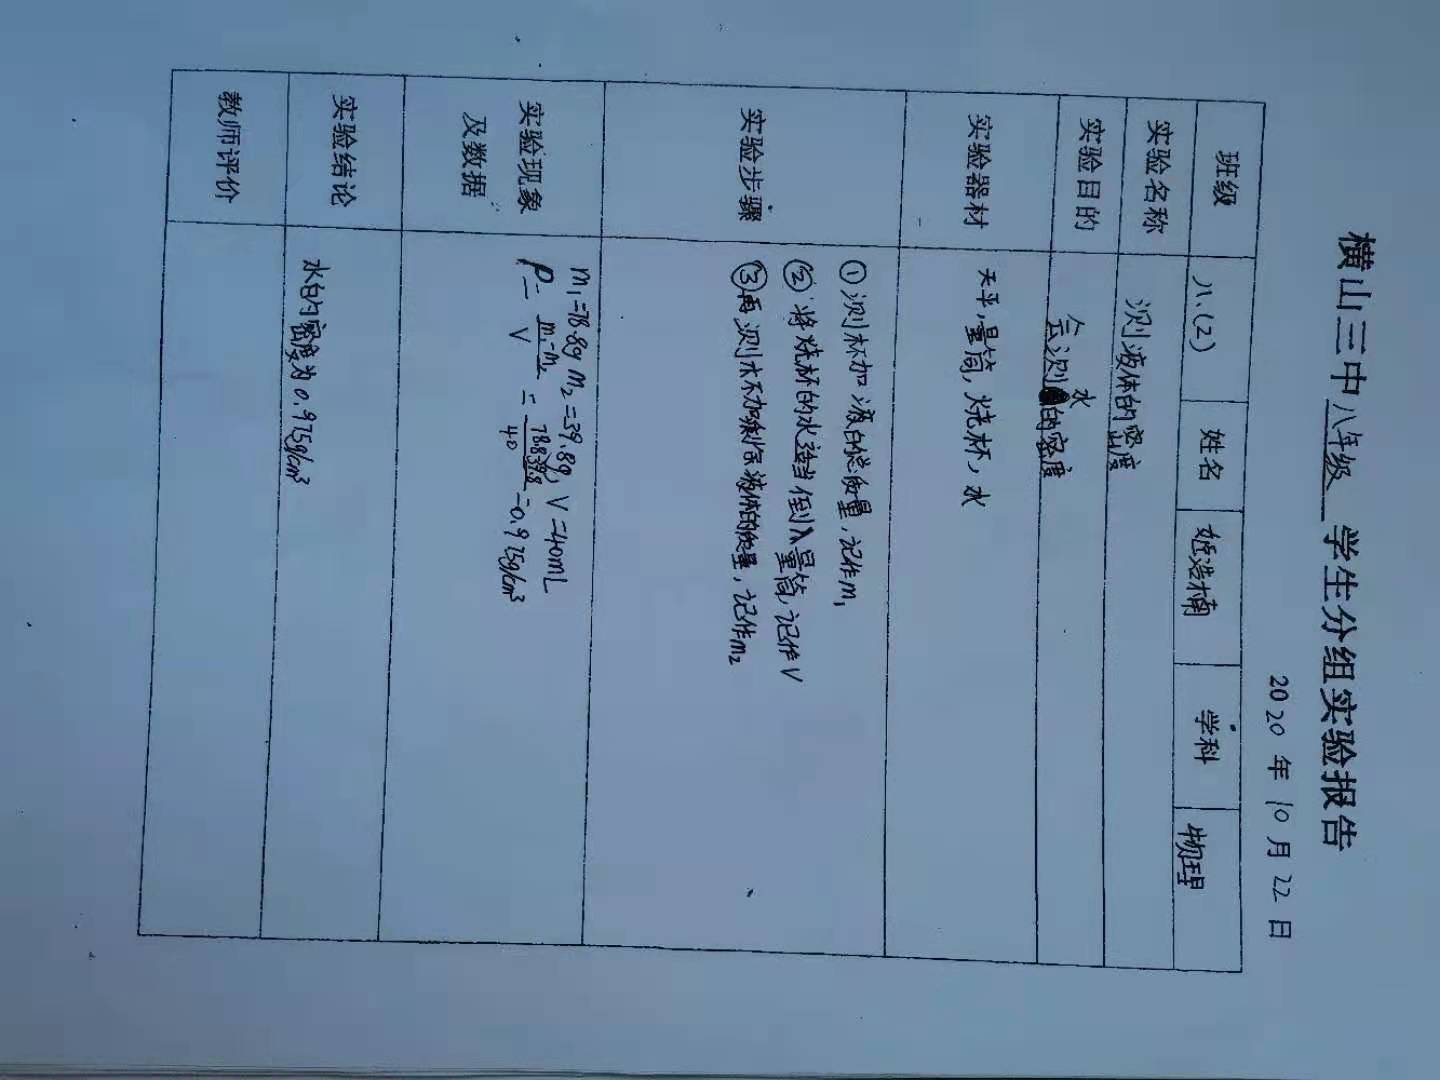 横山三中八年级学生分组实验报告
2020年10月22日
班级 八.(2) 姓名 姬浩楠 学科 物理
实验名称 测液体的密度
实验目的 会测水的密度
实验器材 天平,量筒,烧杯,水
实验步骤
①测杯加液的总质量,记作m₁
②将烧杯的水适当倒入量筒,记作V
③再测水杯加剩余液体的质量,记作m₂
实验现象及数据
m₁=78.8g m₂=39.8g, V=40mL
ρ=(m₁-m₂)/V=(78.8-39.8)/40=0.975g/cm³
实验结论 水的密度为0.975g/cm³
教师评价